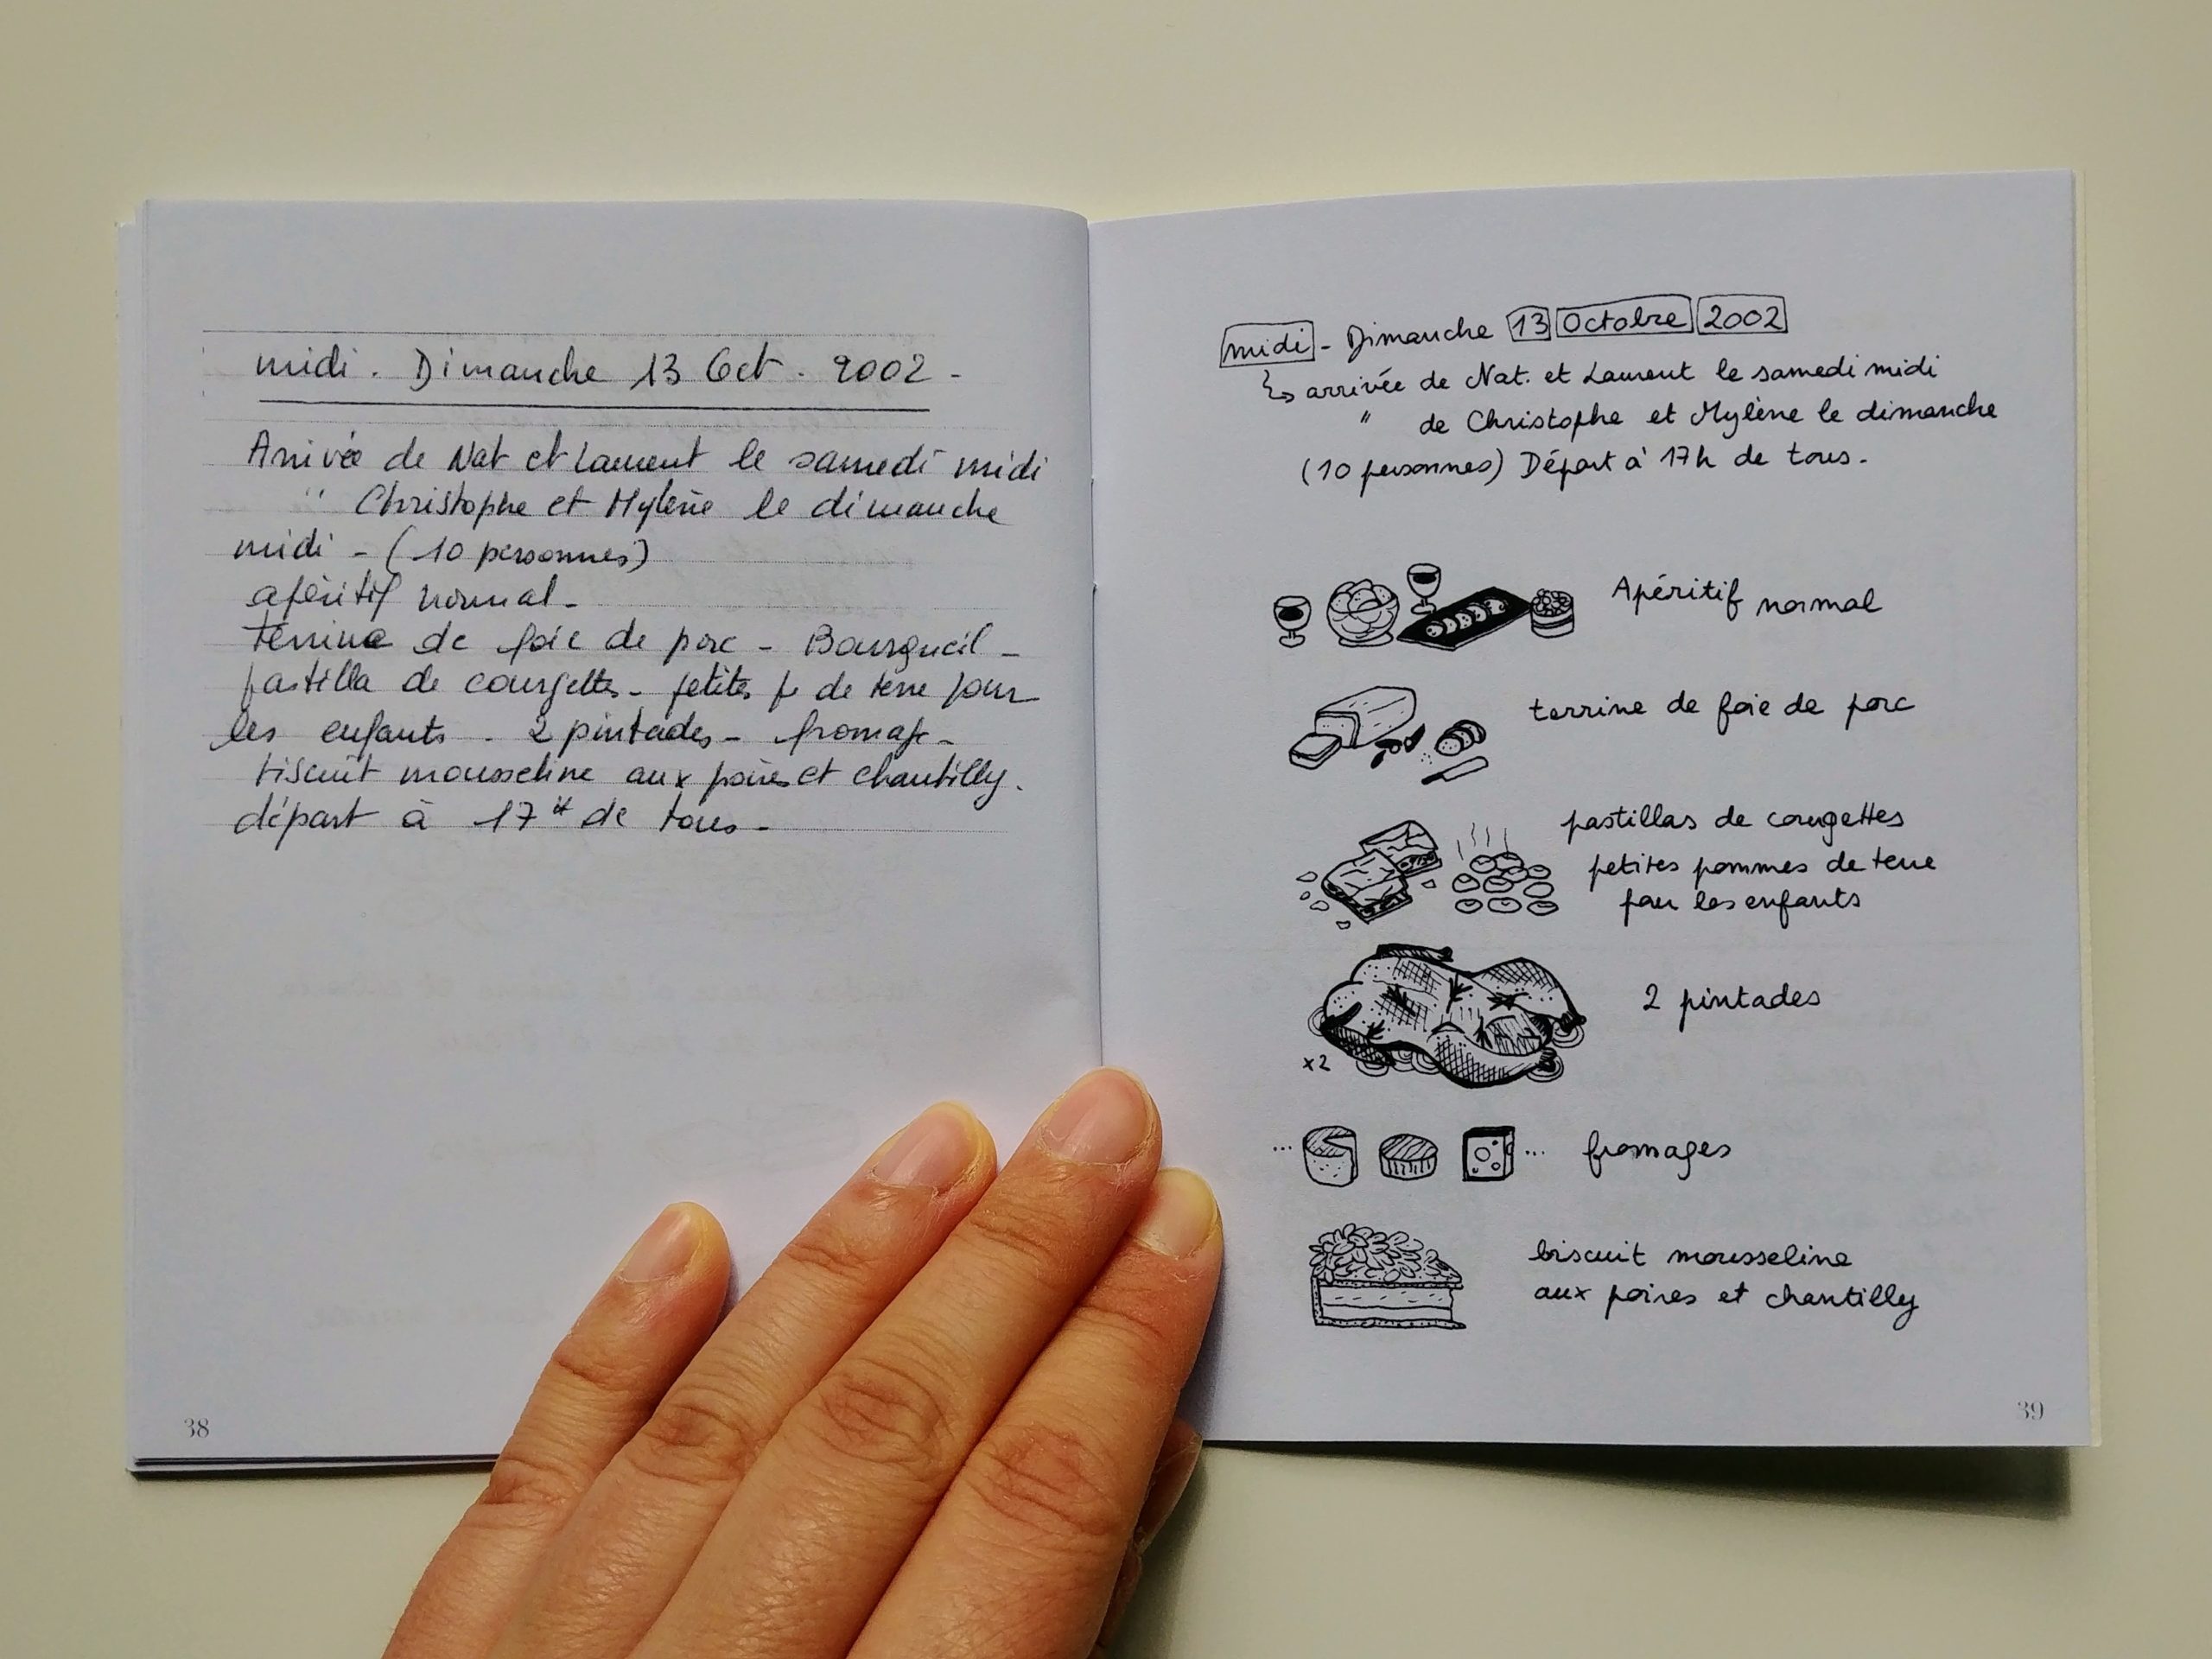 midi. Dimanche 13 Oct. 2002 -
Arrivée de Nat et Laurent le samedi midi
" Christophe et Mylène le dimanche
midi - (10 personnes)
apéritif normal -
terrine de foie de porc - Bourgueil -
pastilla de courgettes - petites p de terre pour
les enfants - 2 pintades - fromage -
biscuit mousseline aux poires et chantilly.
départ à 17 H de tous -
38
midi - Dimanche 13 Octobre 2002
↳ arrivée de Nat. et Laurent le samedi midi
" de Christophe et Mylène le dimanche
(10 personnes) Départ à 17h de tous -
Apéritif normal
terrine de foie de porc
pastillas de courgettes
petites pommes de terre
pour les enfants
2 pintades
x2
... ... fromages
biscuit mousseline
aux poires et chantilly
39